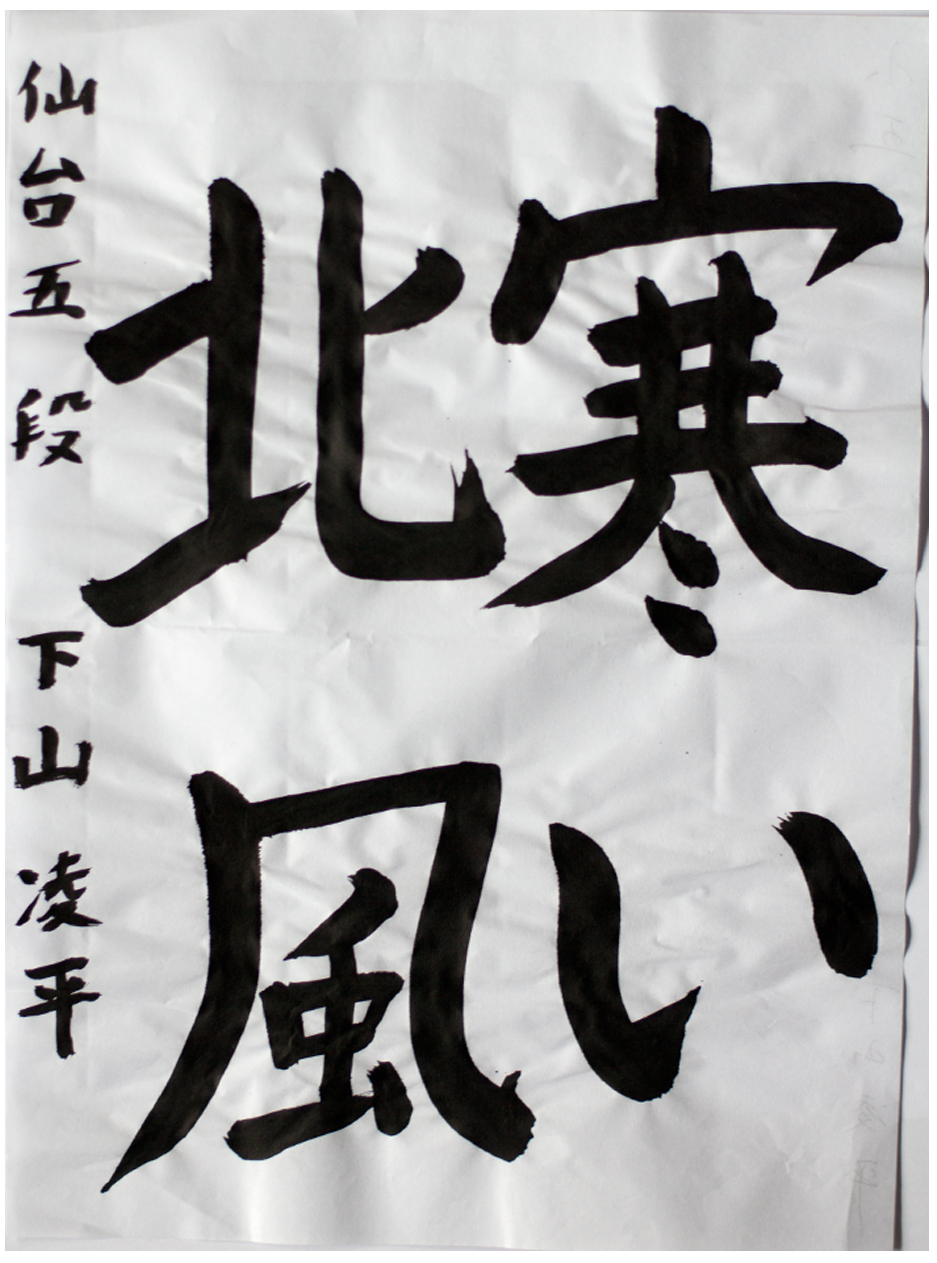 寒い
北風
仙台五段 下山凌平